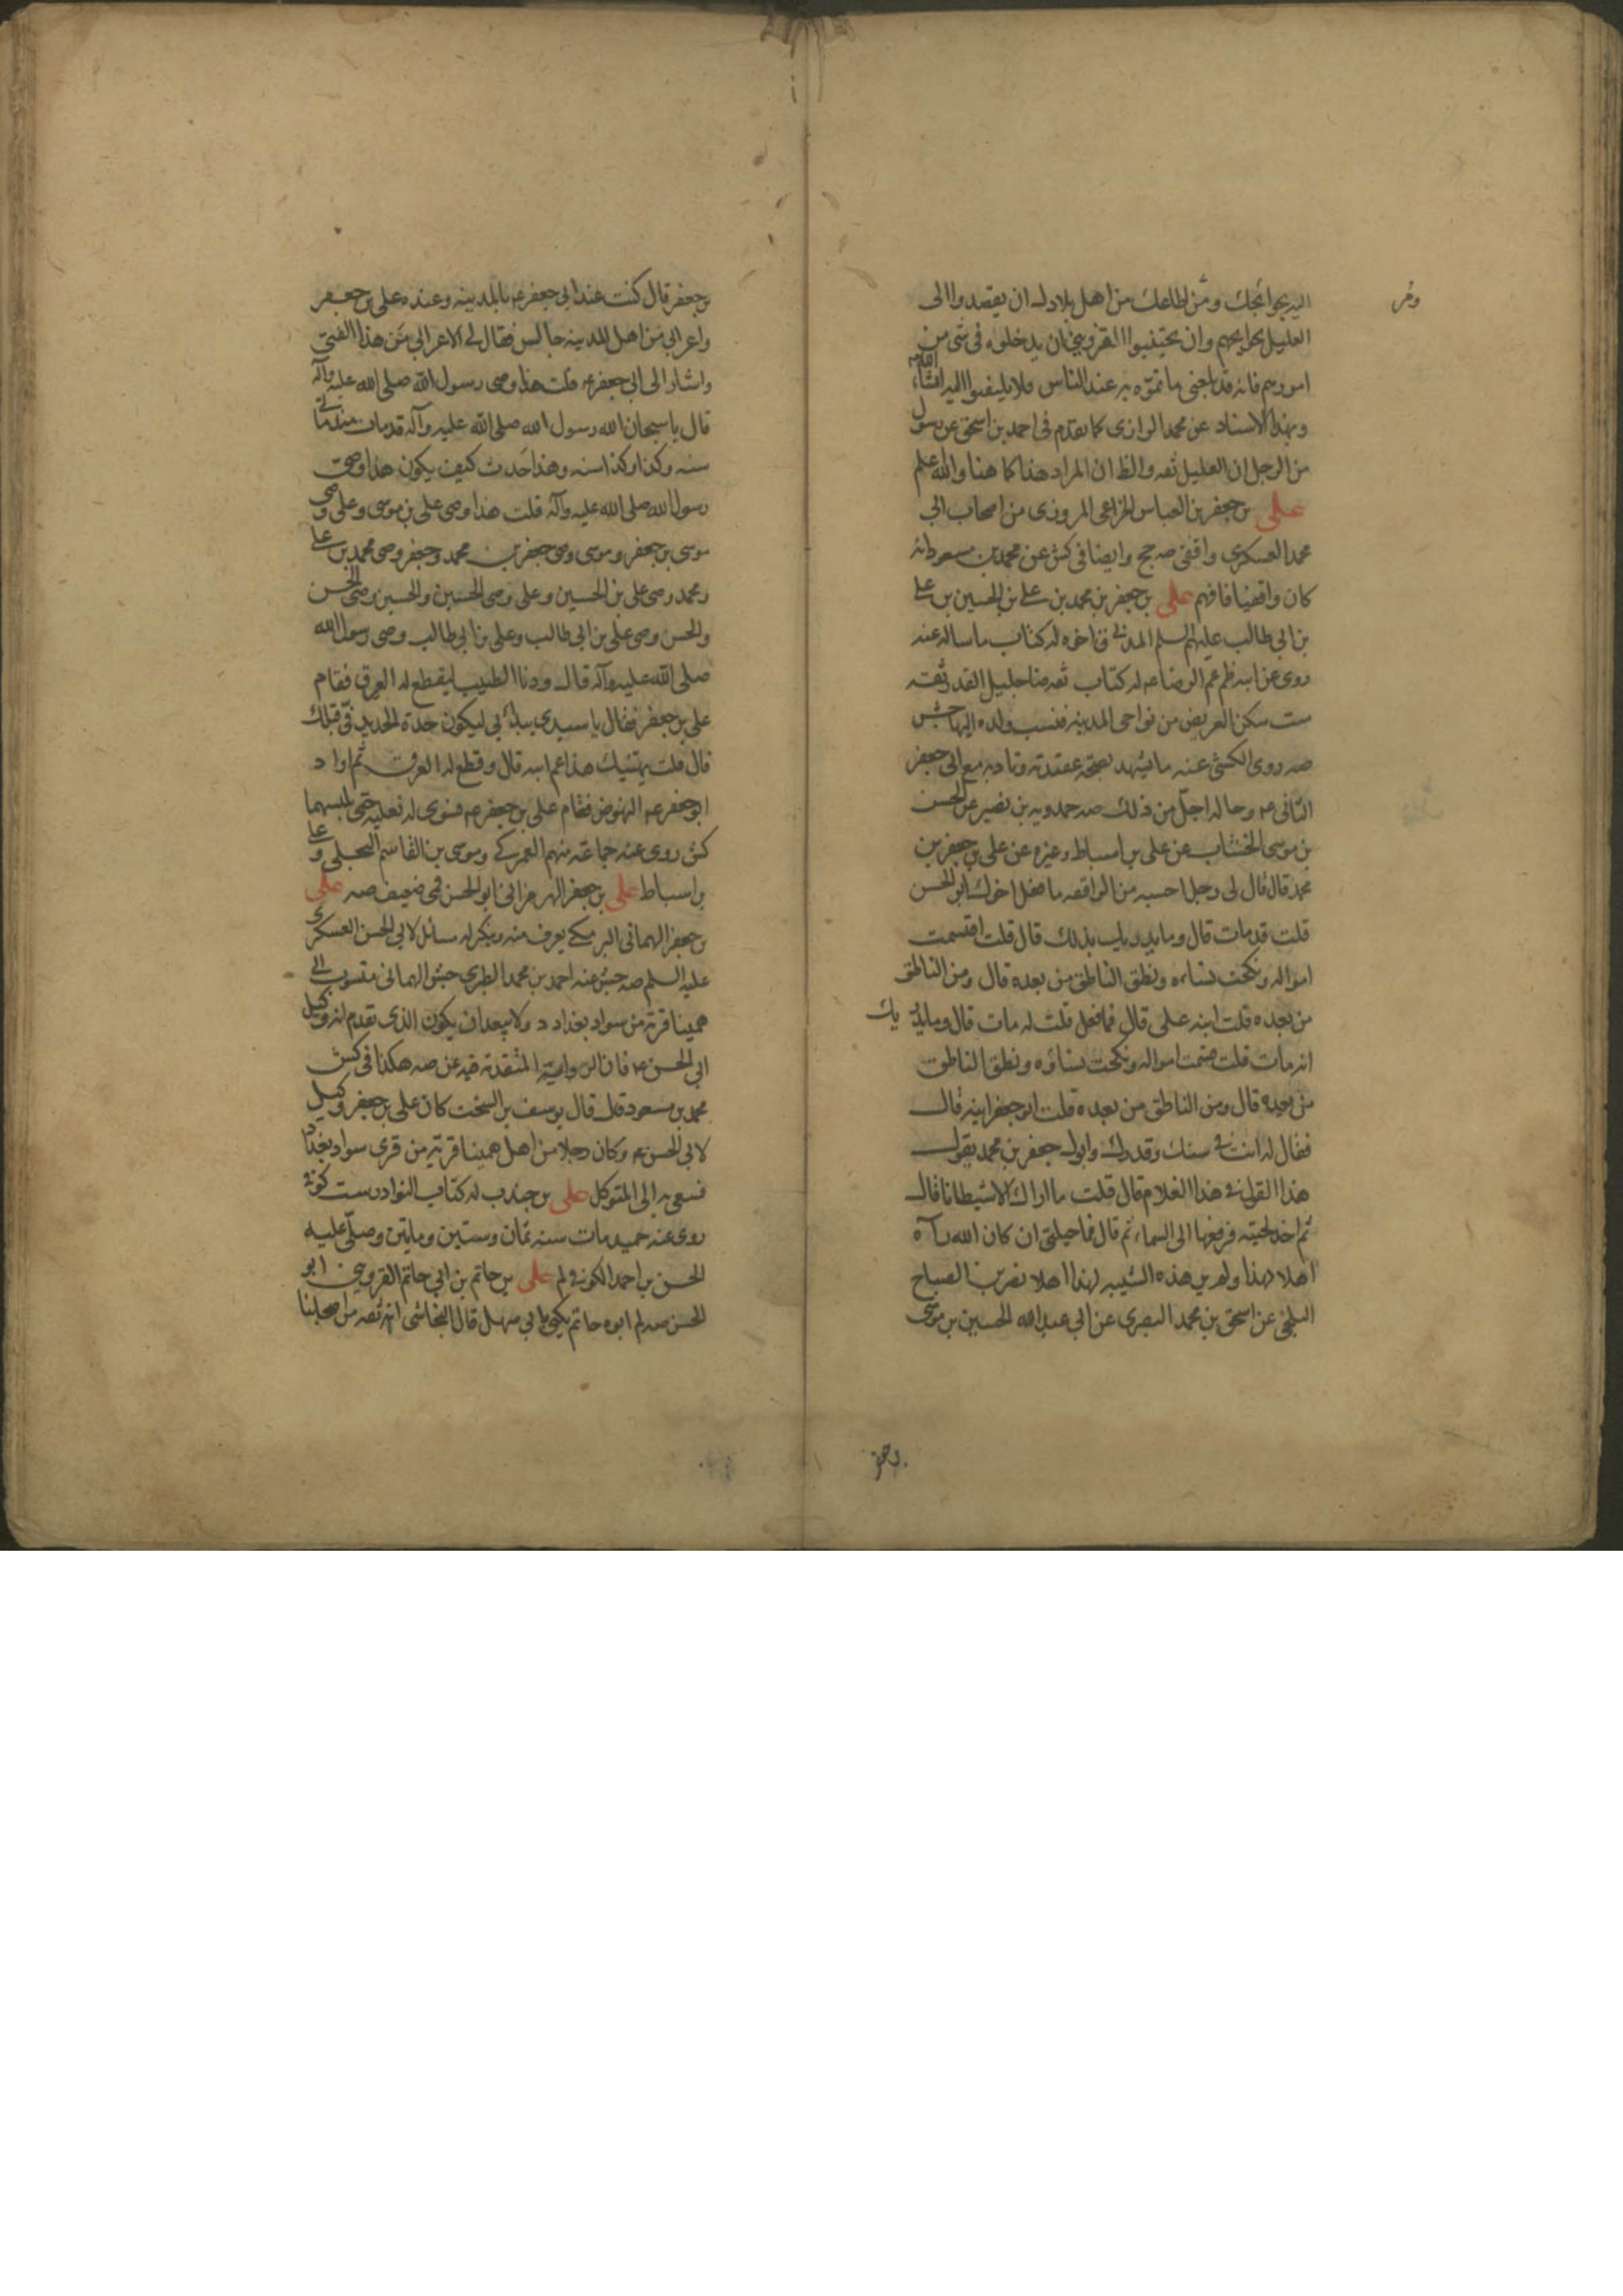 اليه بحوائجك ومن اطاعك من اهل بلادك ان يقصدوا الى
العليل بحوايجهم وان يجتنبوا القزويني ان يدخلوه فى شى من
امورهم فانه قد بلغنى ما تموه به عند الناس فلا يلتفتوا اليه انشاء الله
وبهذا الاسناد عن محمد الرازى كما تقدم فى احمد بن اسحق عن رسول
من الرجل ان العليل ثقه والظ ان المراد هذا كما هنا والله اعلم
على بن جعفر بن العباس الخزاعى المروزى من اصحاب ابى
محمد العسكرى واقفى صه جخ وايضا فى كش عن محمد بن مسعود انه
كان واقفيا فافهم على بن جعفر بن محمد بن على بن الحسين بن على
بن ابى طالب عليهم السلم المدنى ق اخوه له كتاب ما ساله عنه
روى عن ابيه ظم عم الرضا عم له كتاب ثقه ضا جليل القدر ثقه
ست سكن العريض من نواحى المدينه فنسب ولده اليها جش
صه روى الكشى عنه ما يشهد بصحه عقيدته وتادبه مع ابى جعفر
الثانى عم وحاله اجل من ذلك صه حمدويه بن نصير عن الحسن
بن موسى الخشاب عن على بن اسباط وغيره عن على بن جعفر بن
محمد قال قال لى رجل احسبه من الواقفه ما فعل اخوك ابو الحسن
قلت قد مات قال وما يدريك بذلك قال قلت اقتسمت
امواله ونكحت نساءه ونطق الناطق من بعده قال ومن الناطق
من بعده قلت ابنه على قال فما فعل قلت له مات قال وما يدريك
انه مات قلت قسمت امواله ونكحت نساؤه ونطق الناطق
من بعده قال ومن الناطق من بعده قلت ابو جعفر ابنه قال
فقال له انت فى سنك وقدرك وابوك جعفر بن محمد يقول
هذا القول فى هذا الغلام قال قلت ما اراك الا شيطانا قال
ثم اخذ لحيته فرفعها الى السماء ثم قال فما حيلتى ان كان الله رآه
اهلا لهذا ولم ير هذه الشيبه لهذا اهلا نصر بن الصباح
البلخى عن اسحق بن محمد البصرى عن ابى عبد الله الحسين بن موسى
بن جعفر قال كنت عند ابى جعفر عم بالمدينه وعنده على بن جعفر
واعرابى من اهل المدينه جالس فقال لى الاعرابى من هذا الفتى
واشار الى ابى جعفر عم قلت هذا وصى رسول الله صلى الله عليه وآله
قال يا سبحان الله رسول الله صلى الله عليه وآله قد مات منذ مائتى
سنه وكذا وكذا سنه وهذا حدث كيف يكون هذا وصى
رسول الله صلى الله عليه وآله قلت هذا وصى على بن موسى وعلى وصى
موسى بن جعفر وموسى وصى جعفر بن محمد وجعفر وصى محمد بن على
ومحمد وصى على بن الحسين وعلى وصى الحسين والحسين وصى الحسن
والحسن وصى على بن ابى طالب وعلى بن ابى طالب وصى رسول الله
صلى الله عليه وآله قال ودنا الطبيب ليقطع له العرق فقام
على بن جعفر فقال يا سيدى يبدأ بى ليكون حدة الحديد فى قبلك
قال قلت يهنيك هذا عم ابيه قال وقطع له العرق ثم اراد
ابو جعفر عم النهوض فقام على بن جعفر عم فسوى له نعليه حتى لبسهما
كش روى عنه جماعه منهم العمركى وموسى بن القاسم البجلى وعلى
بن اسباط على بن جعفر الهرمزانى ابو الحسن قمى ضعيف صه على
بن جعفر الهمانى البرمكى يعرف منه وينكر له مسائل لابى الحسن العسكرى
عليه السلم صه جش عنه احمد بن محمد الطبرى جش الهمانى منسوب الى
همينا قرية من سواد بغداد د ولا يبعد ان يكون الذى تقدم انه وكيل
ابى الحسن عم فان الرواية المتقدمة فيه عن صه هكذا فى كش
محمد بن مسعود قال قال يوسف بن السخت كان على بن جعفر وكيل
لابى الحسن عم وكان رجلا من اهل همينا قرية من قرى سواد بغداد
فسعى به الى المتوكل على بن جندب له كتاب النوادر ست كوفى
روى عنه حميد مات سنه ثمان وستين ومايتين وصلى عليه
الحسن بن احمد الكوفى لم على بن حاتم بن ابى حاتم القزوينى ابو
الحسن صه لم ابوه حاتم يكنى بابى سهل قال النجاشى انه ثقه من اصحابنا